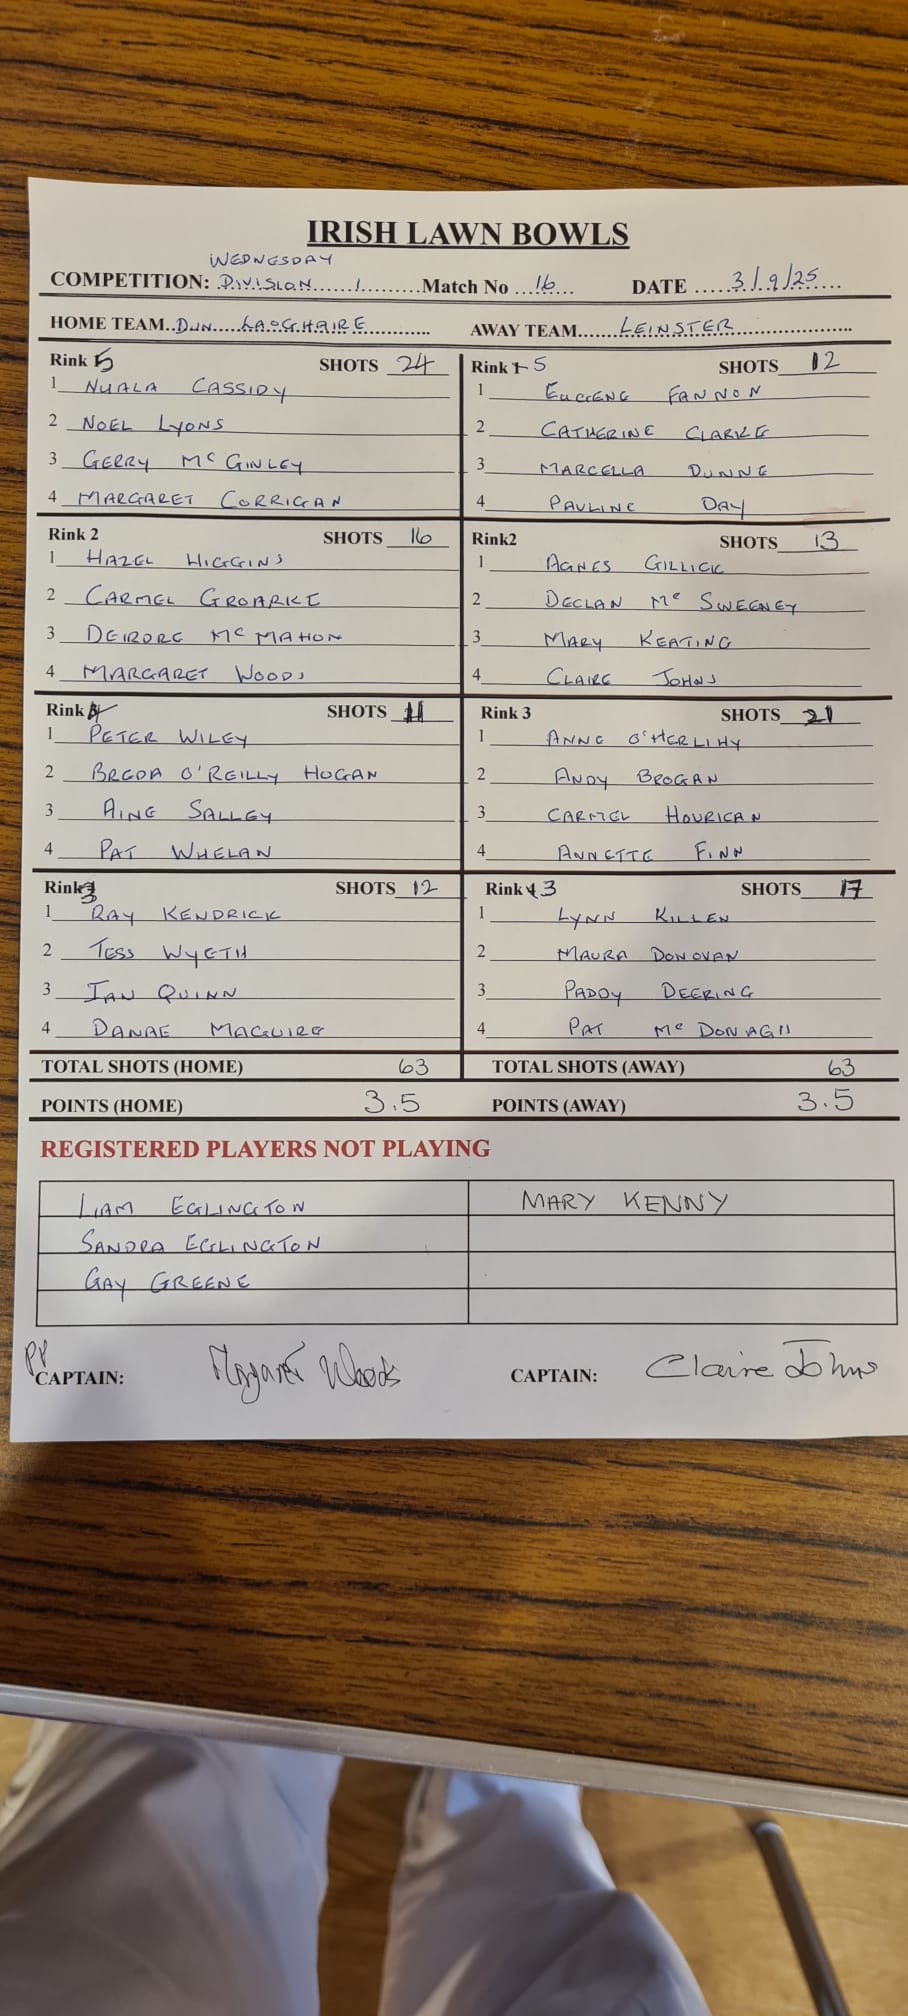 IRISH LAWN BOWLS
WEDNESDAY
COMPETITION: DIVISION 1 Match No 16 DATE 3/9/25
HOME TEAM DUN LAOGHAIRE AWAY TEAM LEINSTER
Rink 5 SHOTS 24
1 NUALA CASSIDY
2 NOEL LYONS
3 GERRY McGINLEY
4 MARGARET CORRIGAN
Rink 5 SHOTS 12
1 EUGENE FANNON
2 CATHERINE CLARKE
3 MARCELLA DUNNE
4 PAULINE DAY
Rink 2 SHOTS 16
1 HAZEL HIGGINS
2 CARMEL GROARKE
3 DEIRDRE McMAHON
4 MARGARET WOODS
Rink2 SHOTS 13
1 AGNES GILLICK
2 DECLAN Mc SWEENEY
3 MARY KEATING
4 CLAIRE JOHNS
Rink 4 SHOTS 11
1 PETER WILEY
2 BREDA O'REILLY HOGAN
3 AINE SALLEY
4 PAT WHELAN
Rink 3 SHOTS 21
1 ANNE O'HERLIHY
2 ANDY BROGAN
3 CARMEL HOURICAN
4 ANNETTE FINN
Rink 3 SHOTS 12
1 RAY KENDRICK
2 TESS WYETH
3 IAN QUINN
4 DANAE MAGUIRE
Rink 3 SHOTS 17
1 LYNN KILLEN
2 MAURA DONOVAN
3 PADDY DEERING
4 PAT Mc DONAGH
TOTAL SHOTS (HOME) 63 TOTAL SHOTS (AWAY) 63
POINTS (HOME) 3.5 POINTS (AWAY) 3.5
REGISTERED PLAYERS NOT PLAYING
LIAM EGLINGTON MARY KENNY
SANDRA EGLINGTON
GAY GREENE
PP
CAPTAIN: Margaret Woods CAPTAIN: Claire Johns